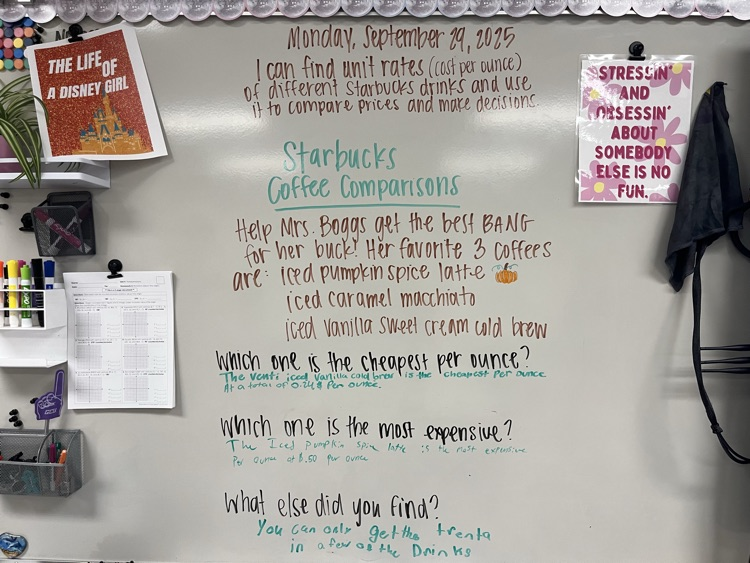 Monday, September 29, 2025
I can find unit rates (cost per ounce)
of different Starbucks drinks and use
it to compare prices and make decisions.
THE LIFE
OF
A DISNEY GIRL
STRESSIN'
AND
OBSESSIN'
ABOUT
SOMEBODY
ELSE IS NO
FUN.
Starbucks
Coffee Comparisons
Help Mrs. Boggs get the best BANG
for her buck! Her favorite 3 coffees
are: iced pumpkin spice latte
iced caramel macchiato
iced vanilla sweet cream cold brew
Which one is the cheapest per ounce?
The venti iced vanilla cold brew is the cheapest per ounce
At a total of per ounce.
Which one is the most expensive?
The Iced pumpkin spice latte is the most expensive
Per ounce at $.50 per ounce
What else did you find?
You can only get the trenta
in a few of the Drinks